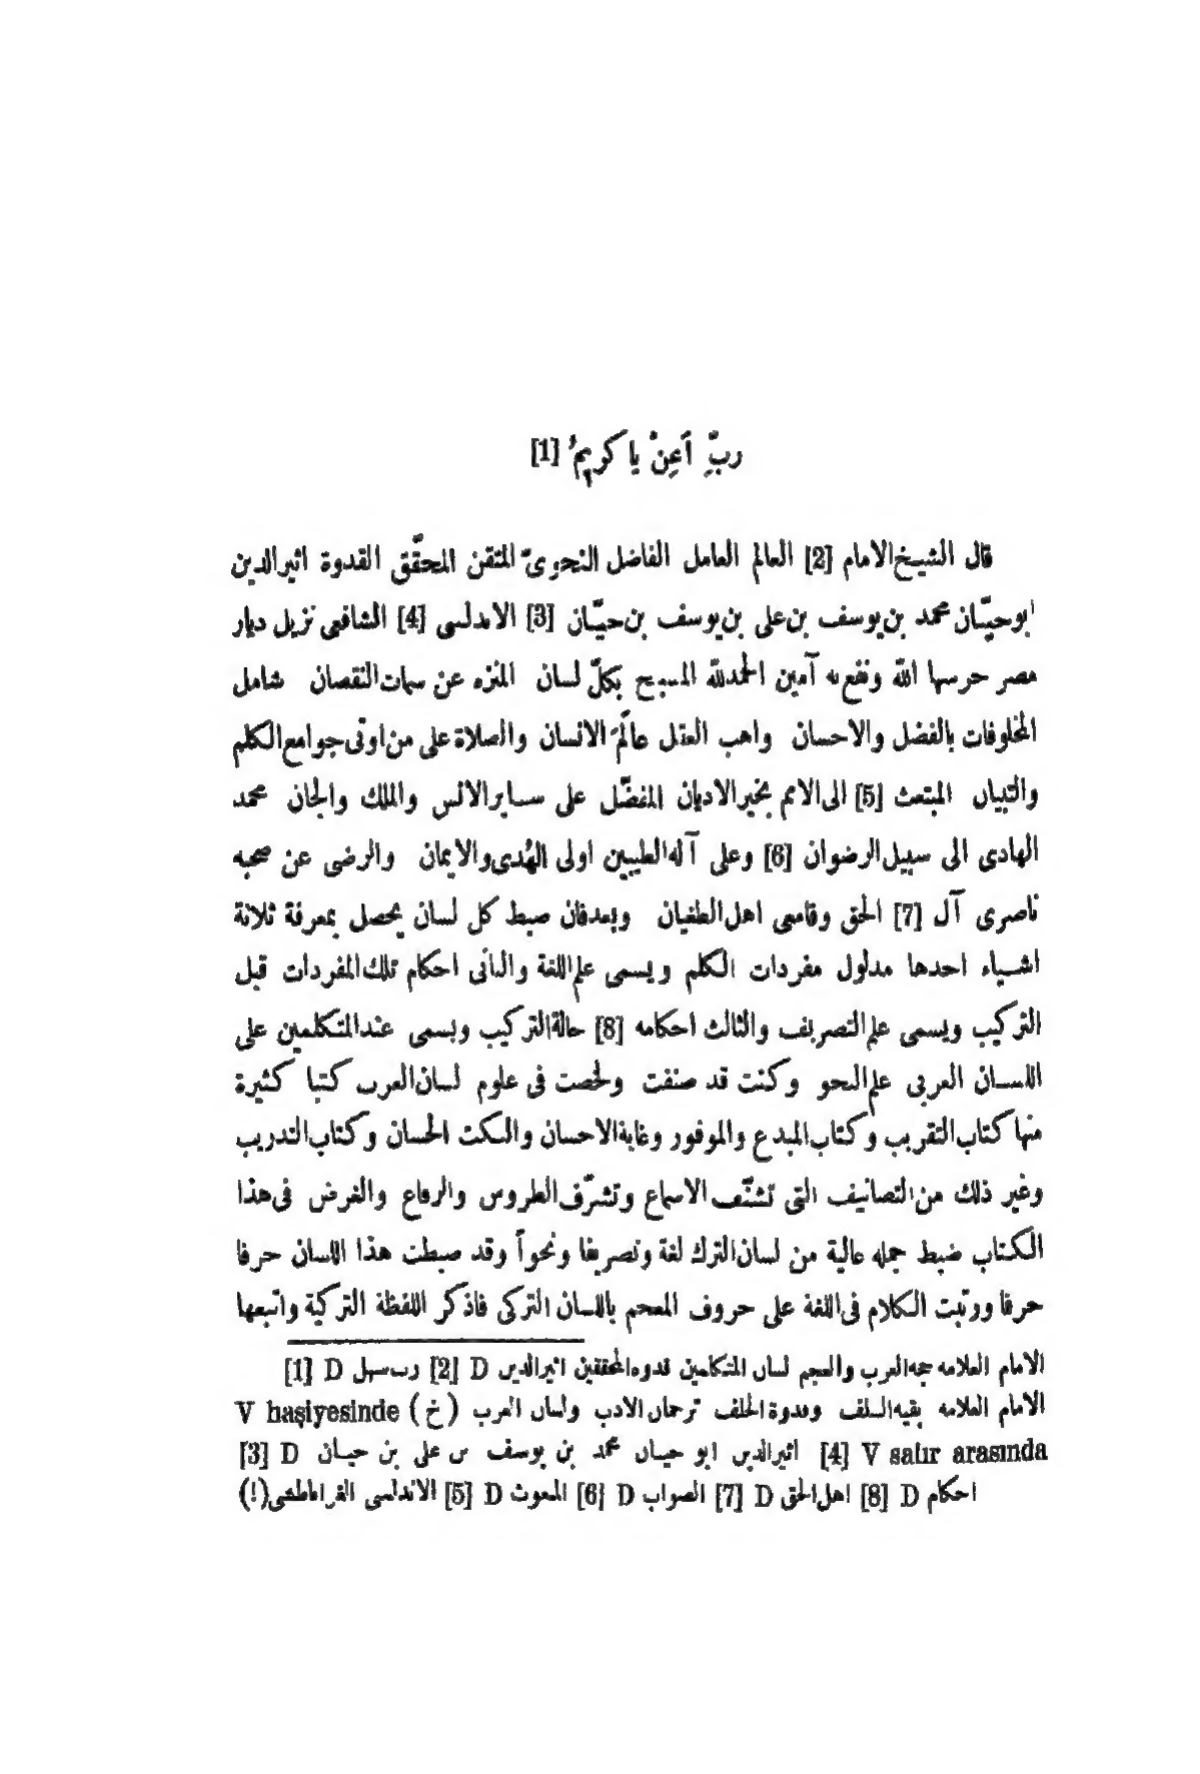 ربِّ اَعِنْ يا كريمُ [1]
قال الشيخ‌الامام [2] العالم العامل الفاضل النحوىّ المتقن المحقّق القدوة اثيرالدين
ابوحيّان محمد بن‌يوسف بن‌على بن‌يوسف بن‌حيّان [3] الاندلسى [4] الشافعى نزيل ديار
مصر حرسها الله ونفع‌به آمين الحمدلله المسبح بكلّ لسان المنزه عن سمات‌النقصان شامل
المخلوقات بالفضل والاحسان واهب العقل عالَمَ الانسان والصلاة على من‌اوتى‌جوامع‌الكلم
والتبيان المبتعث [5] الى‌الامم بخيرالاديان المفضّل على سايرالانس والملك والجان محمد
الهادى الى سبيل‌الرضوان [6] وعلى آله‌الطيبين اولى الهُدى‌والايمان والرضى عن صحبه
ناصرى آل [7] الحق وقامعى اهل‌الطغيان وبعدفان ضبط كل لسان يحصل بمعرفة ثلاثة
اشياء احدها مدلول مفردات الكلم ويسمى علم‌اللغة والثانى احكام تلك‌المفردات قبل
التركيب ويسمى علم‌التصريف والثالث احكامه [8] حالة‌التركيب ويسمى عندالمتكلمين على
اللسان العربى علم‌النحو وكنت قد صنفت ولخصت فى علوم لسان‌العرب كتبا كثيرة
منها كتاب‌التقريب وكتاب‌المبدع والموفور وغاية‌الاحسان والنكت الحسان وكتاب‌التدريب
وغير ذلك من‌التصانيف التى تشنّف الاسماع وتشرّف‌الطروس والرقاع والغرض فى‌هذا
الكتاب ضبط جمله غالبة من لسان‌الترك لغة وتصريفا ونحواً وقد ضبطت هذا اللسان حرفا
حرفا ورتبت الكلام فى‌اللغة على حروف المعجم باللسان التركى فاذكر اللفظة التركية واتبعها
[1] D رب‌سهل [2] D الامام العلامه حجه‌العرب والعجم لسان المتكلمين قدوه‌المحققين اثيرالدين
V haşiyesinde (خ) الامام العلامه بقيه‌السلف وقدوة‌الخلف ترجمان‌الادب ولسان العرب
[3] D اثيرالدين ابو حيان محمد بن يوسف بن على بن حيان [4] V satır arasında
الاندلسى الغرناطى(!) [5] D المبعوث [6] D الصواب [7] D اهل‌الحق [8] D احكام